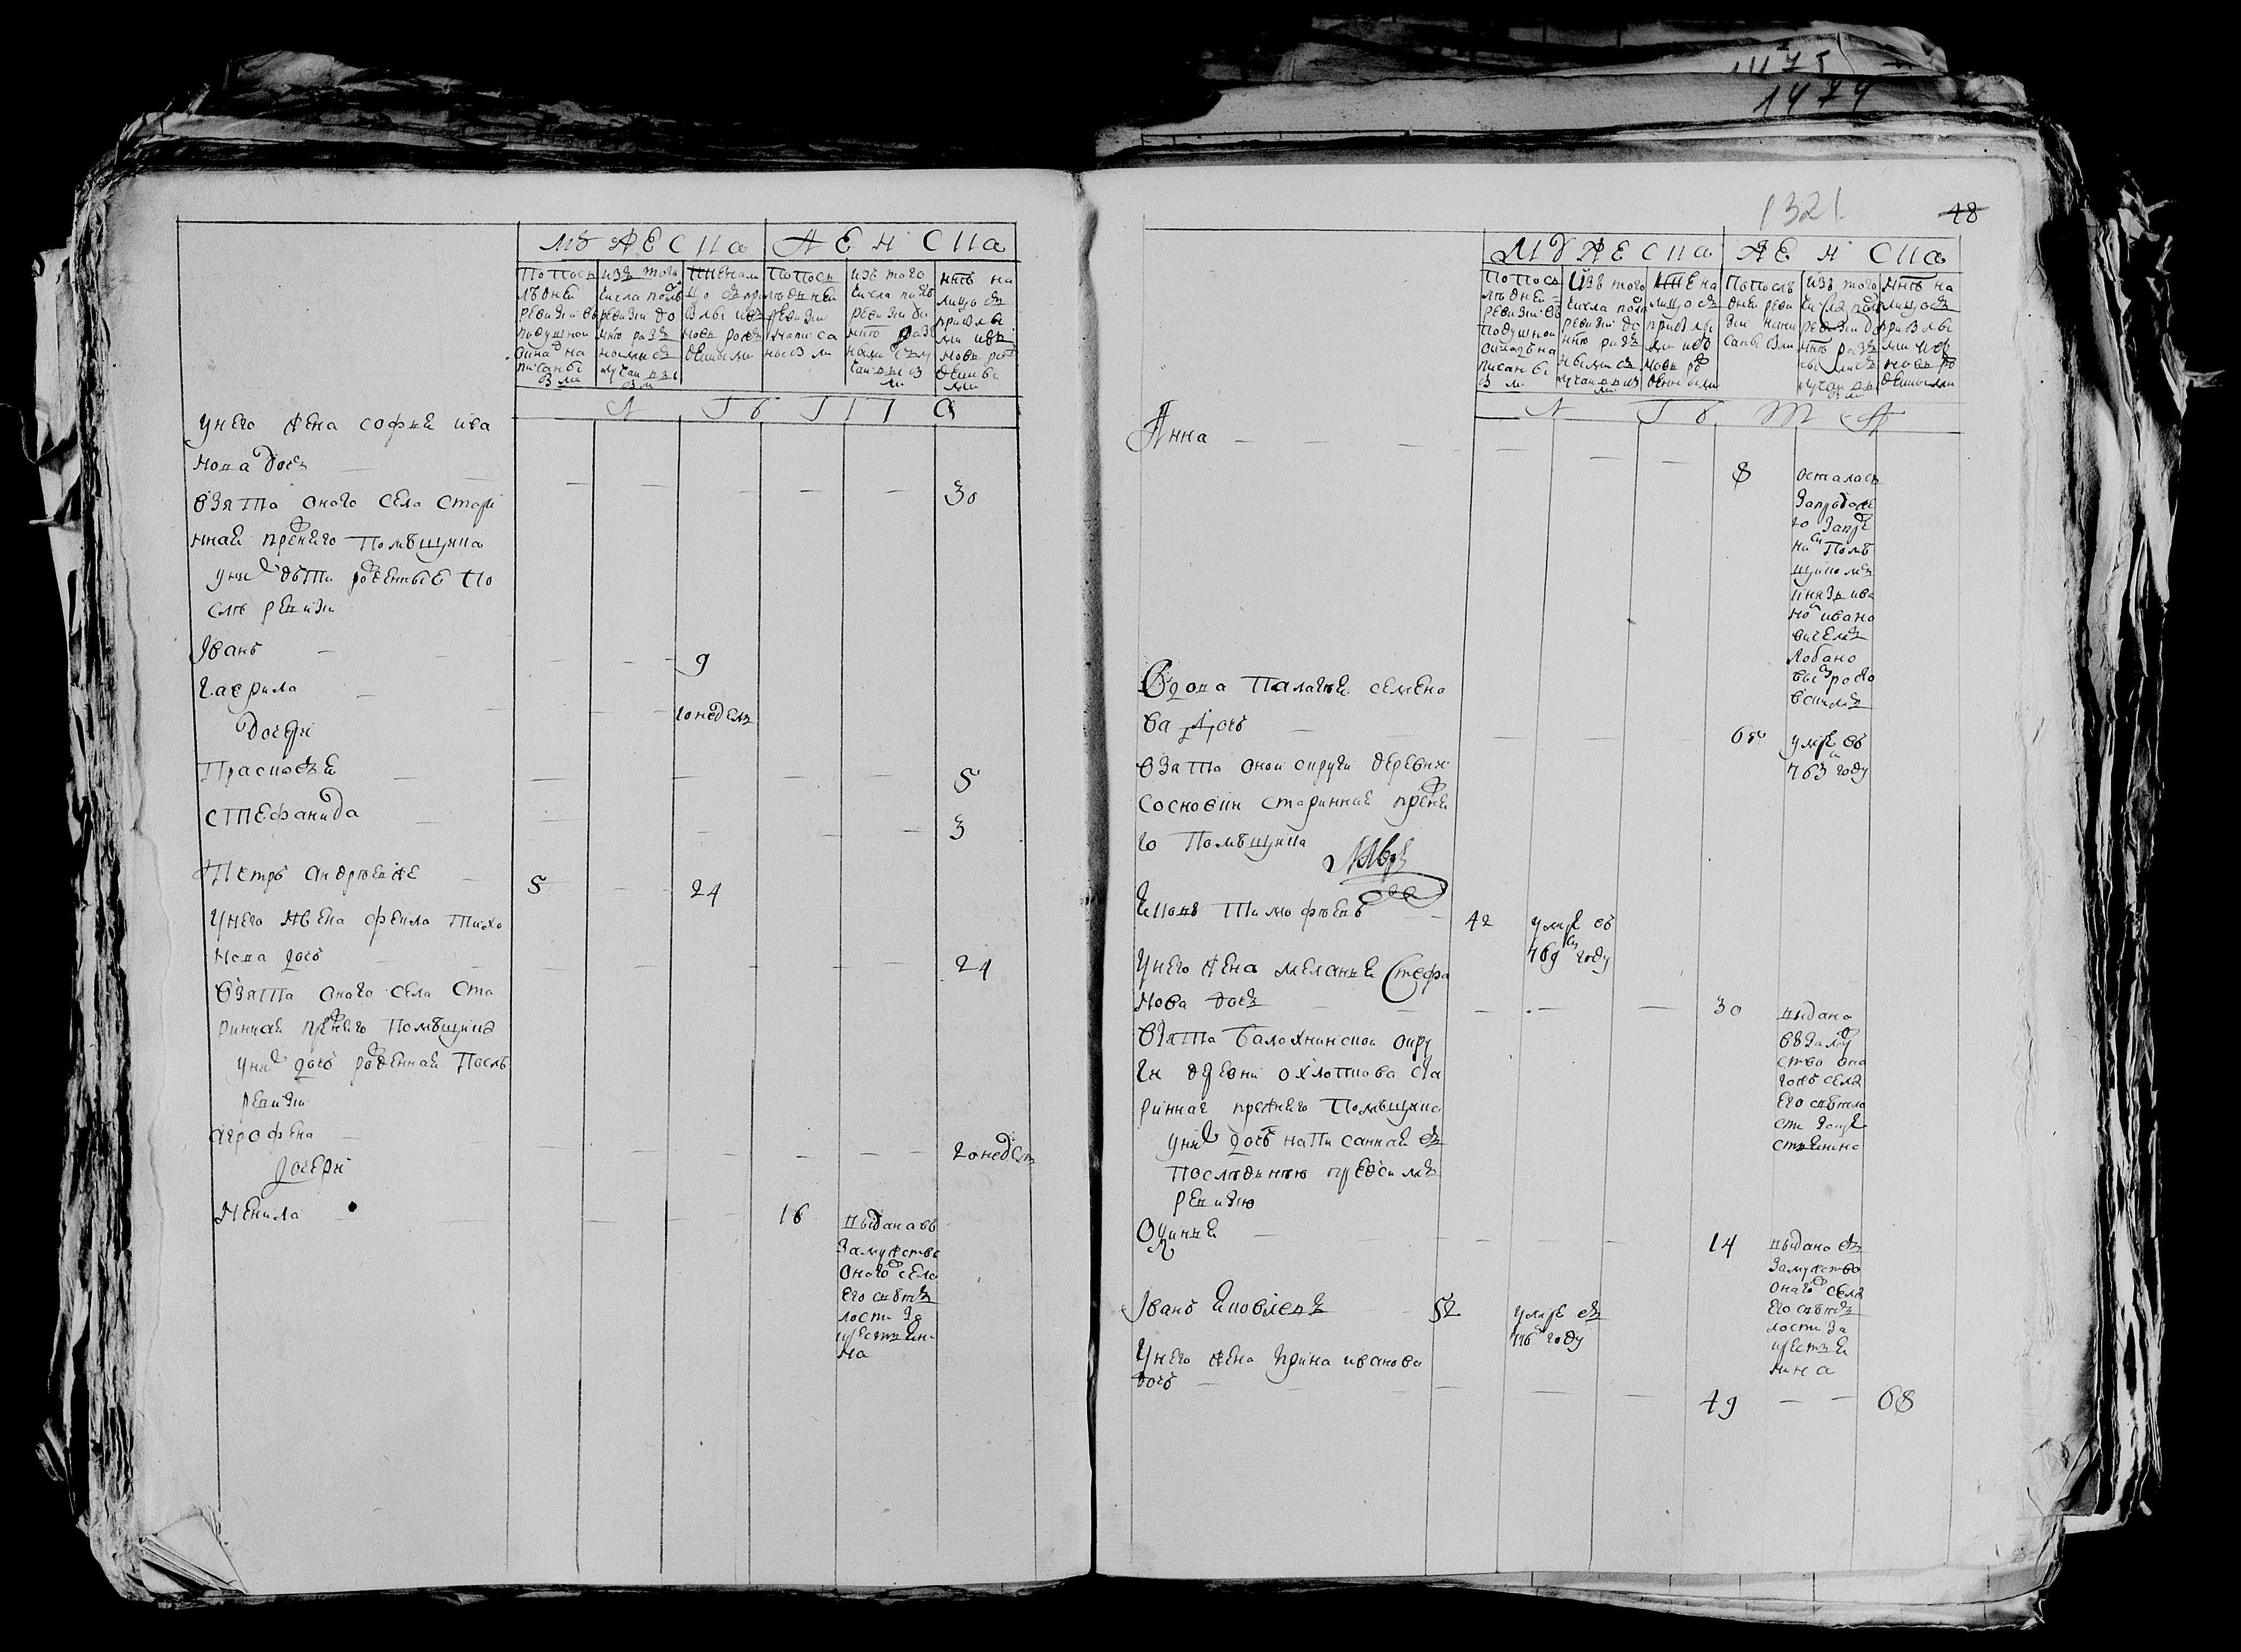 мужеска
женска
По послѣдней ревизіи въ подушной окладъ написаны были
изъ того числа послѣ ревизіи до нынѣ разными случаи выбыли
нынѣ на лицо съ прибылыми и вновь рожденными
По последней ревизіи написаны были
изъ того числа послѣ ревизіи до нынѣ разными случаи выбыли
нынѣ на лицо съ прибылыми и вновь рожденными
Л Ѣ Т А
У него жена софья ива
нова дочь — 30
взята оного села стари
нная прежняго помѣщика
у них дѣти рожденныя по
слѣ ревизіи
Іванъ — 9
Гаврила — 10 недель
Дочери
Прасковья — 5
Стефанида — 3
Петръ андрѣевъ же — 5 — 24
У него жена фекла тихо
нова дочь — 24
взята оного села ста
ринная прежняго помѣщика
у них дочь рожденная послѣ
ревизіи
агрофена — 20 недель
дочери
Ненила — 16
выдана въ
замужство
оного ж села
его свѣт
лости за
крестьяни
на
1321
48
мужеска
женска
По послѣдней ревизіи въ подушной окладъ написаны были
изъ того числа послѣ ревизіи до нынѣ разными случаи выбыли
нынѣ на лицо съ прибылыми и вновь рожденными
По последней ревизіи написаны были
изъ того числа послѣ ревизіи до нынѣ разными случаи выбыли
нынѣ на лицо съ прибылыми и вновь рожденными
Л Ѣ Т А
Анна — 8
осталась
за продаже
ю за преж
ним помѣ
щиком
княз ива
ном ивано
вичемъ
лобано
вым росто
вскимъ
Вдова Палагея семено
ва дочь — 60
умре въ
763м году
взята оной округи деревни
сосновки старинная прежня
го помѣщика
Яковъ Тимофѣевъ — 42
умре въ
769м году
У него жена меланья Стефа
нова дочь — 30
выдана
в замуж
ство оно
гожъ села
его свѣтло
сти за кре
стьянина
взята балохнинской окру
ги деревни охлопкова ста
ринная прежняго помѣщика
у них дочь написанная въ
последнюю пред сим
ревизию
Овдинья — 14
выдана въ
замужство
оного ж села
его свѣт
лости за
крестья
нина
Іванъ Яковлевъ — 52
умре въ
776м году
У него жена Ирина иванова
дочь — 49 — 68